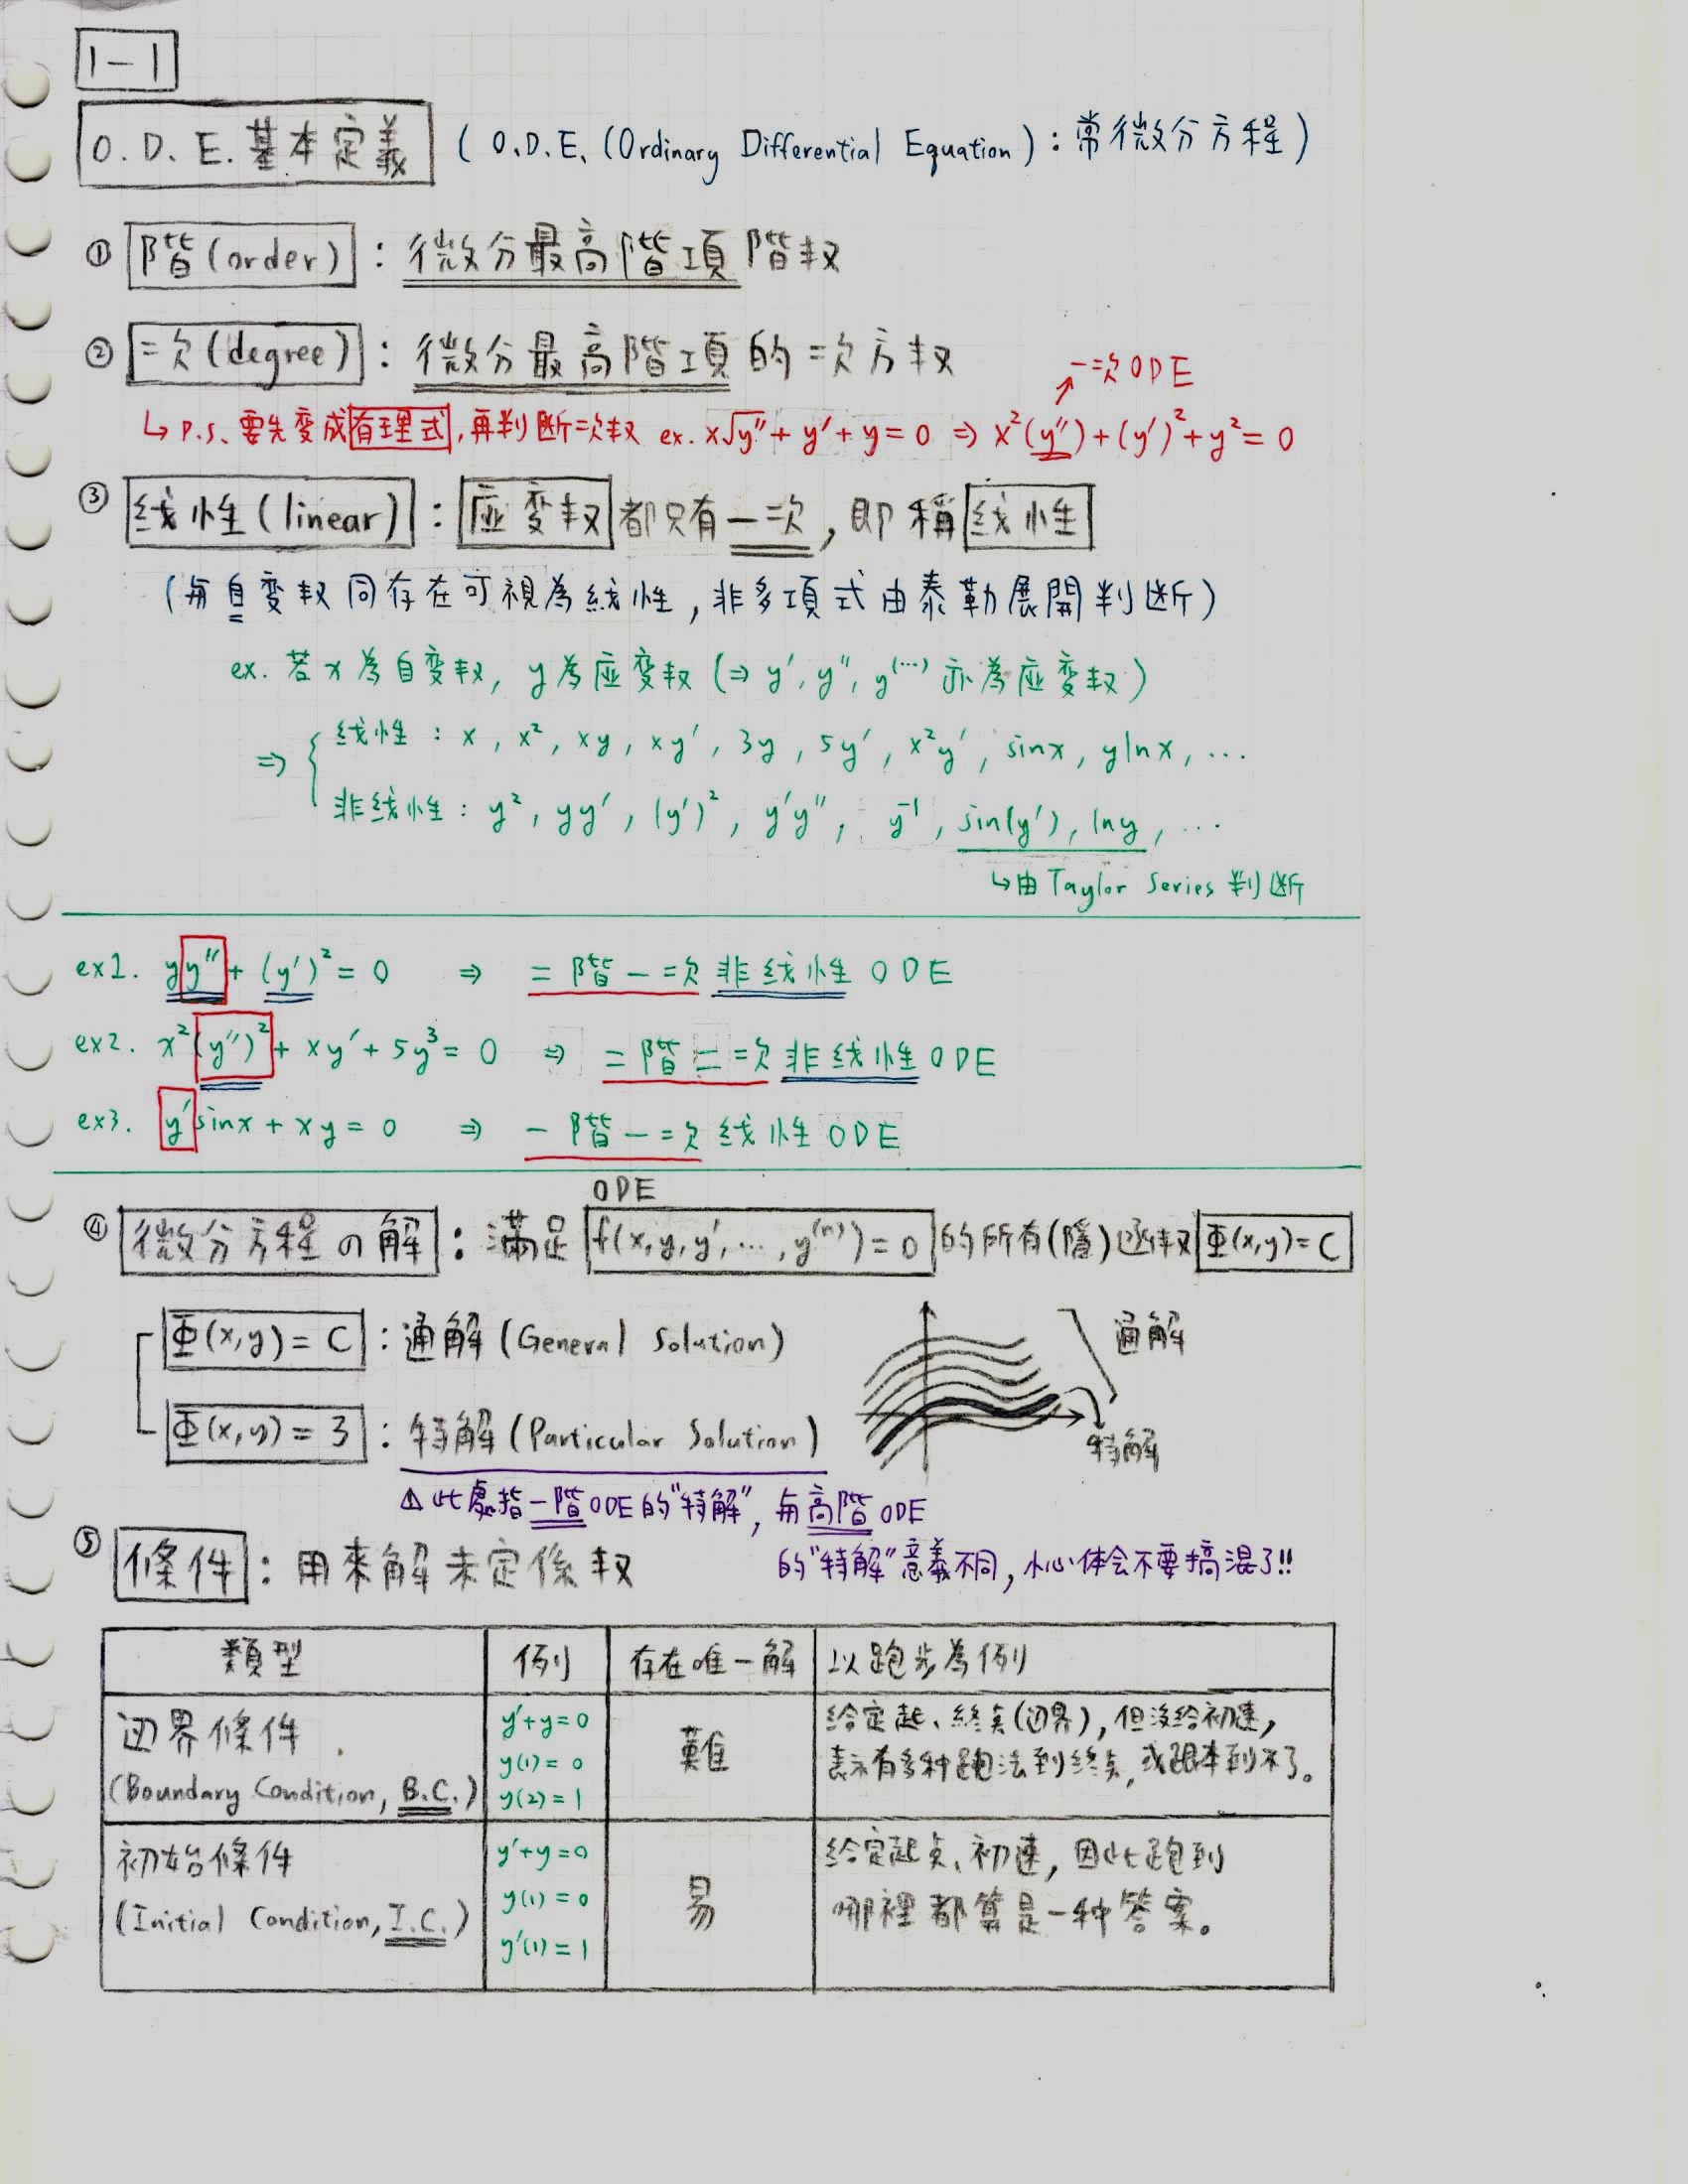 1-1
O.D.E.基本定義 (O.D.E. (Ordinary Differential Equation):常微分方程)
① 階(order):微分最高階項階数
② 次(degree):微分最高階項的次方数
一次ODE
↳ P.S. 要先変成有理式,再判断次数 ex. x√y''+y'+y=0 ⇒ x²(y'')+(y')²+y²=0
③ 线性(linear):应变数都只有一次,即稱线性
(與自变数同存在可視為线性,非多項式由泰勒展開判断)
ex. 若x為自变数, y為应变数 (⇒ y', y'', y⁽˙˙˙⁾ 亦為应变数)
⇒ { 线性: x, x², xy, xy', 3y, 5y', x²y', sinx, ylnx, ...
非线性: y², yy', (y')², y'y'', y⁻¹, sin(y'), lny, ...
↳由 Taylor Series 判断
ex1. yy''+(y')²=0 ⇒ 二階一次非线性ODE
ex2. x²(y'')²+xy'+5y³=0 ⇒ 二階二次非线性ODE
ex3. y'sinx+xy=0 ⇒ 一階一次线性ODE
ODE
④ 微分方程の解:滿足 f(x,y,y',...,y⁽ⁿ⁾)=0 的所有(隱)函数 Φ(x,y)=C
Φ(x,y)=C:通解(General Solution)
通解
Φ(x,y)=3:特解(Particular Solution)
特解
⚠此處指一階ODE的"特解", 與高階ODE
的"特解"意義不同, 小心体会不要搞混了!!
⑤ 條件:用來解未定係数
類型 例 存在唯一解 以跑步為例
边界條件
(Boundary Condition, B.C.)
y'+y=0
y(1)=0
y(2)=1
難
給定起、終点(边界), 但沒給初速,
表示有多种跑法到终点, 或跟本到不了。
初始條件
(Initial Condition, I.C.)
y'+y=0
y(1)=0
y'(1)=1
易
給定起点、初速, 因此跑到
哪裡都算是一种答案。